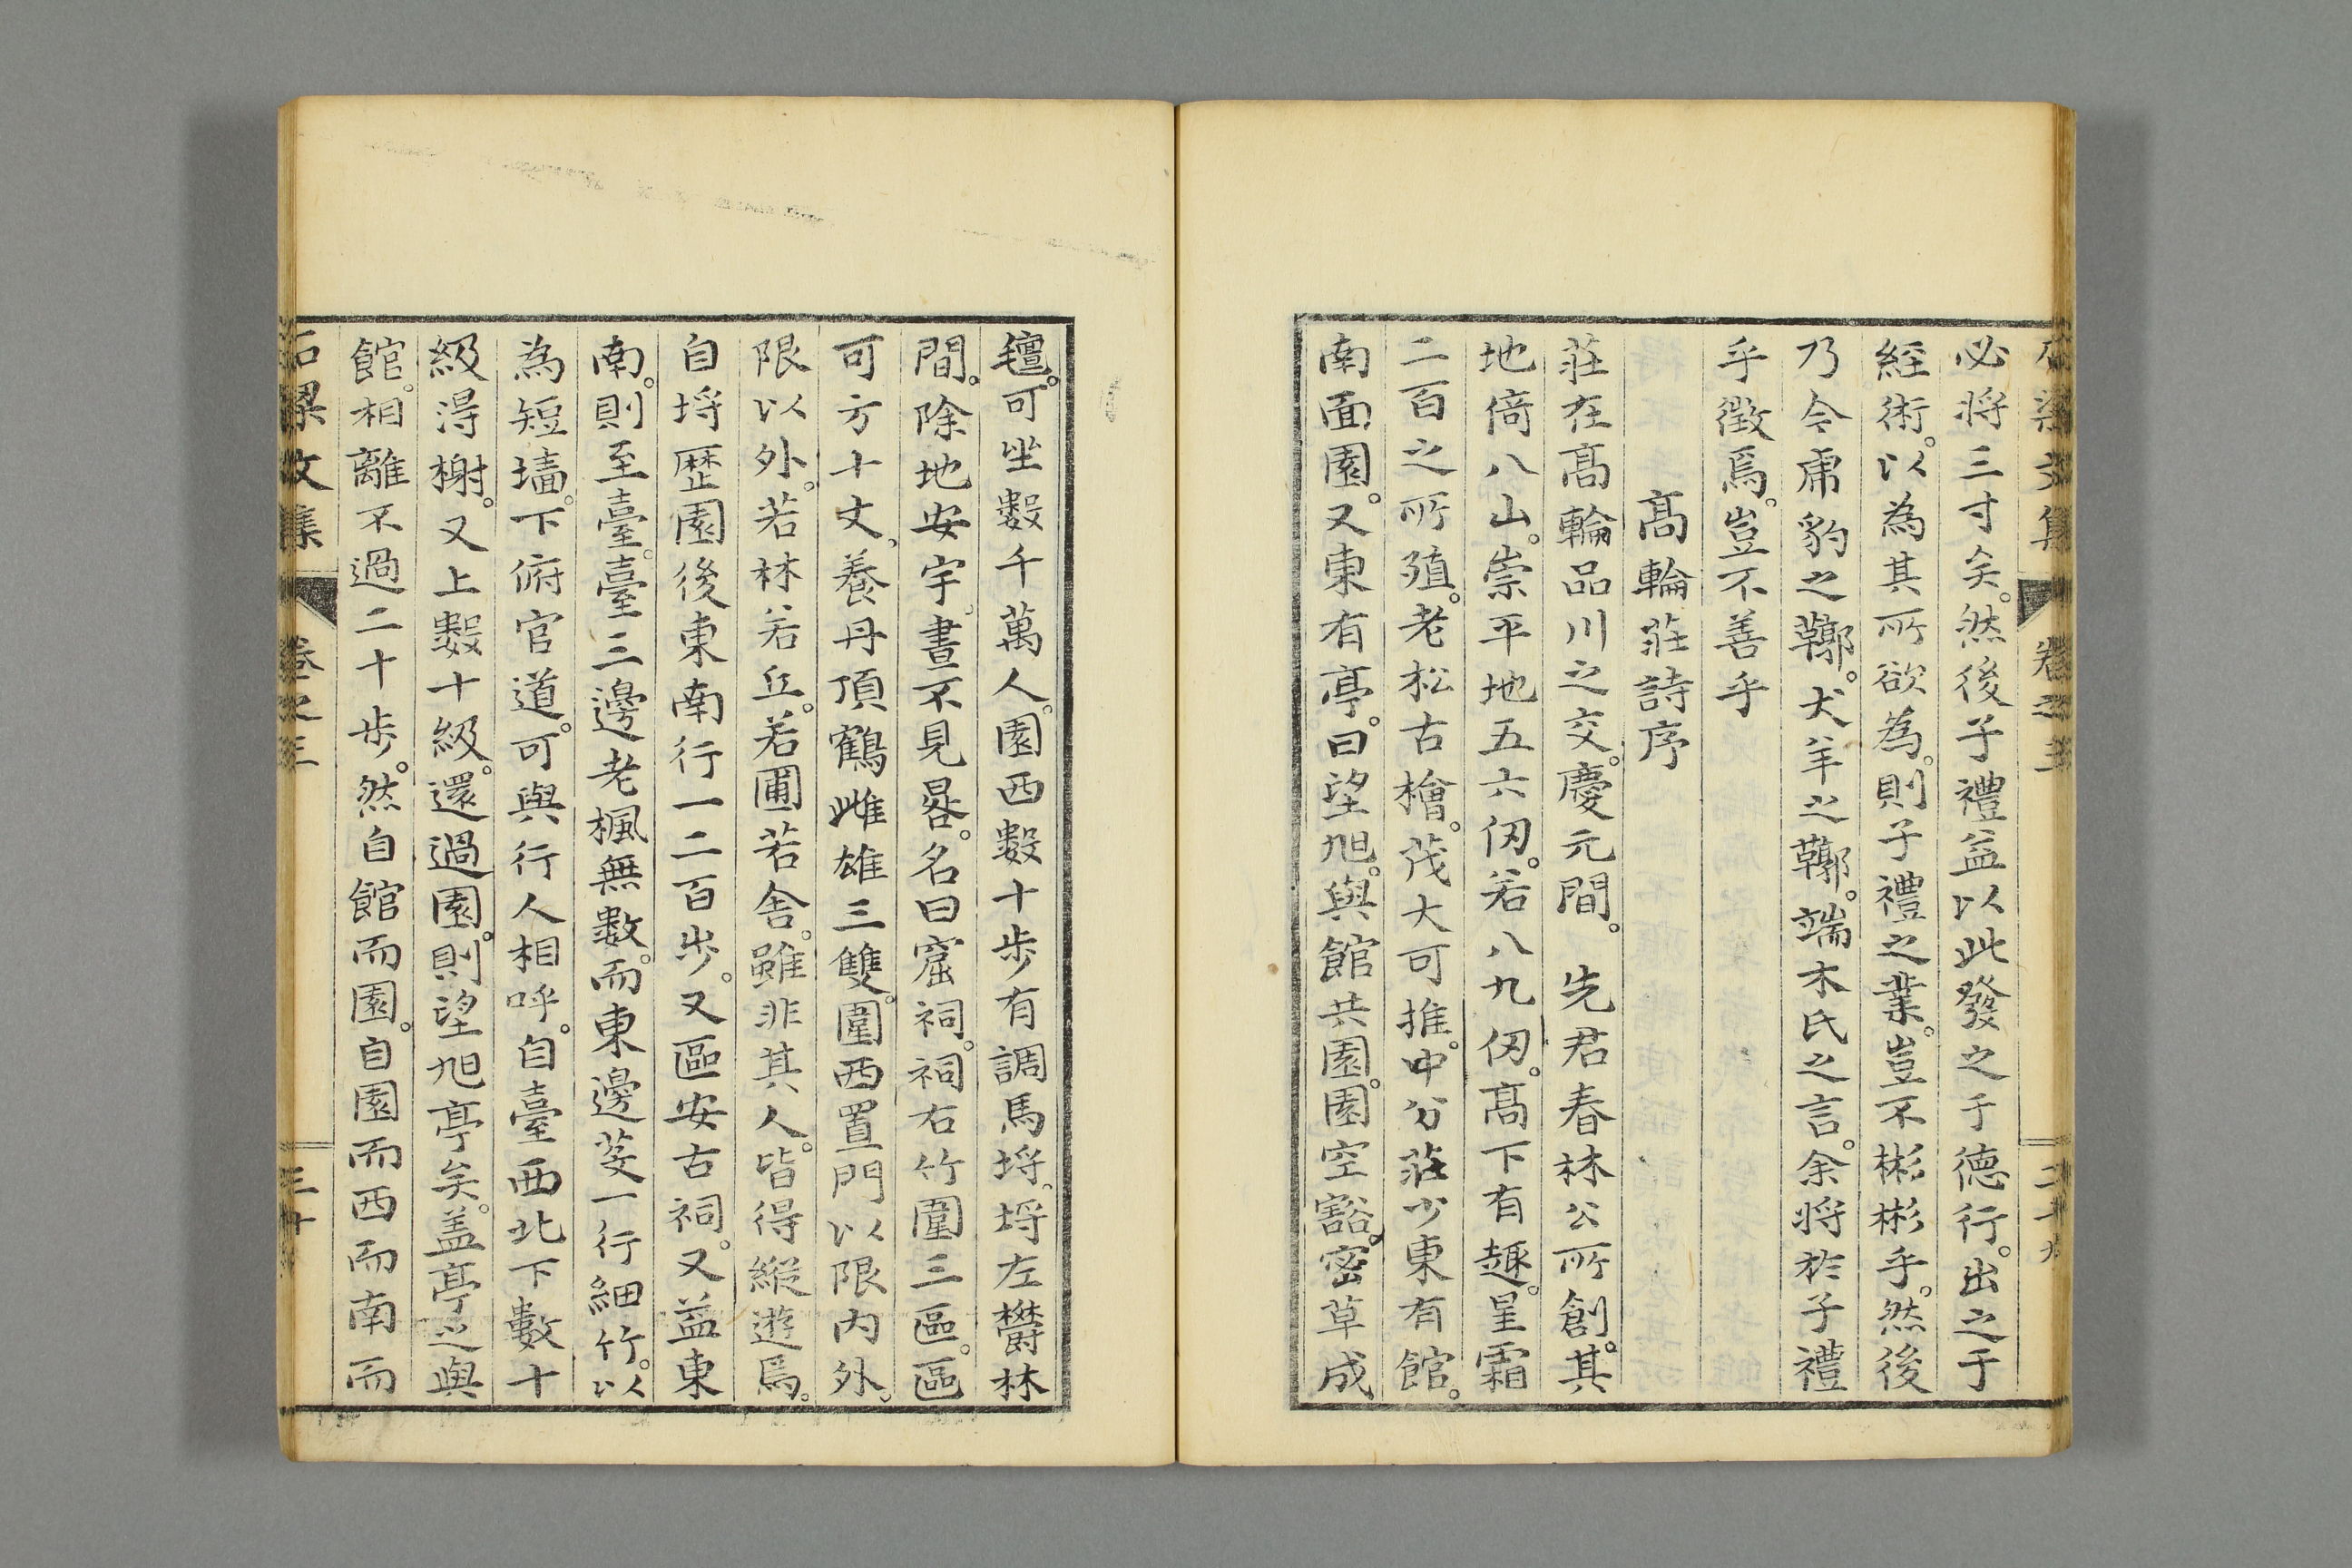 必将三寸矣。然後子禮益以此發之于德行。出之于
經術。以為其所欲為。則子禮之業。豈不彬彬乎。然後
乃令虎豹之鞹。犬羊之鞹。端木氏之言。余将於子禮
乎徴焉。豈不善乎
髙輪莊詩序
莊在髙輪品川之交。慶元間。　先君春林公所創。其
地倚八山。崇平地五六仭。若八九仭。髙下有趣。星霜
二百之所殖。老松古檜。茂大可推。中分莊少東有館。
南面園。又東有亭。曰望旭。與館共園。園空豁。密草成
氊。可坐數千萬人。園西數十步有調馬埒。埒左欝林
間。除地安宇。晝不見晷。名曰窟祠。祠右竹圍三區。區
可方十丈。養丹頂鶴雌雄三雙。圍西置門以限内外。
限以外。若林若丘。若圃若舎。雖非其人。皆得縦遊焉。
自埒歴園後東南行一二百步。又區安古祠。又益東
南。則至臺。臺三邊老楓無數。而東邊芟一行細竹。以
為短墻。下俯官道。可與行人相呼。自臺西北下數十
級得榭。又上數十級。還過園。則望旭亭矣。盖亭之與
館。相離不過二十步。然自館而園。自園而西而南而
石梁文集　卷之三　三十